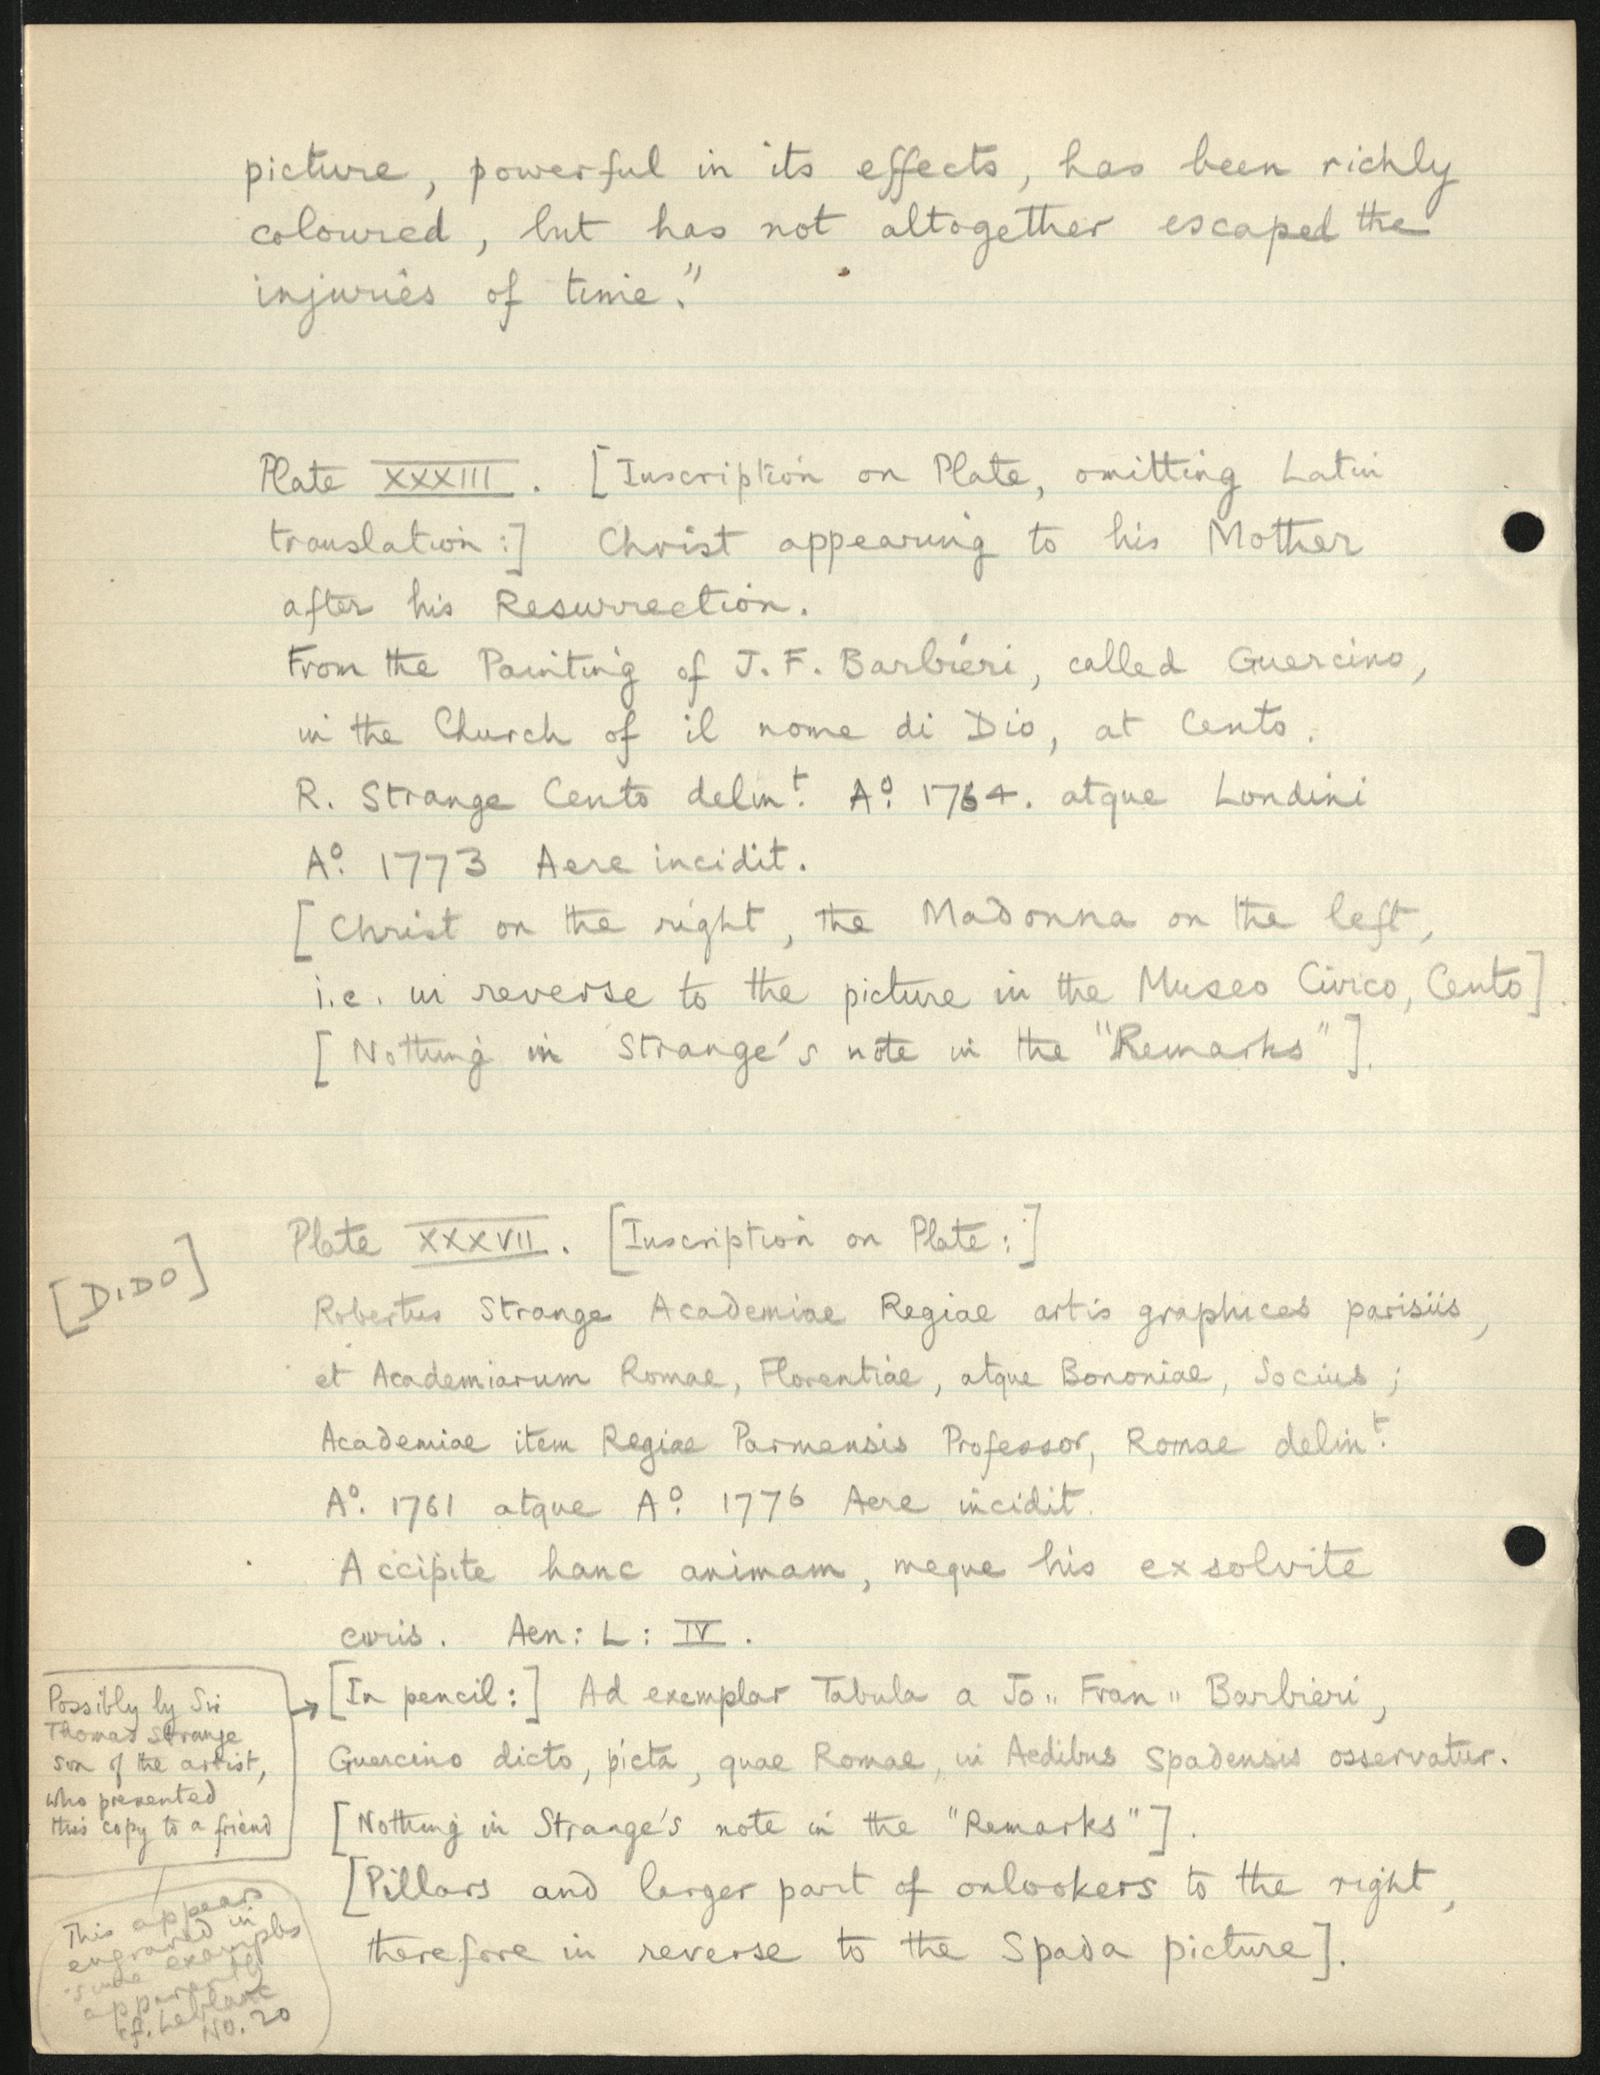 picture, powerful in its effects, has been richly
coloured, but has not altogether escaped the
injuries of time."
Plate XXXIII. [Inscription on Plate, omitting Latin
translation:] Christ appearing to his Mother
after his Resurrection.
From the Painting of J. F. Barbiéri, called Guercino,
in the Church of il nome di Dio, at Cento.
R. Strange Cento delinᵗ. Aº. 1764. atque Londini
Aº. 1773 Aere incidit.
[Christ on the right, the Madonna on the left,
i.e. in reverse to the picture in the Museo Civico, Cento].
[Nothing in Strange's note in the "Remarks"].
[DIDO]
Plate XXXVII. [Inscription on Plate:]
Robertus Strange Academiae Regiae artis graphices parisiis,
et Academiarum Romae, Florentiae, atque Bononiae, Socius;
Academiae item Regiae Parmensis Professor, Romae delinᵗ.
Aº. 1761 atque Aº. 1776 Aere incidit.
Accipite hanc animam, meque his exsolvite
curis. Aen: L: IV.
[In pencil:] Ad exemplar Tabula a Jo" Fran" Barbieri,
Guercino dicto, picta, quae Romae, in Aedibus Spadensis osservatur.
[Nothing in Strange's note in the "Remarks"].
[Pillars and larger part of onlookers to the right,
therefore in reverse to the Spada picture].
Possibly by Sir
Thomas Strange
son of the artist,
who presented
this copy to a friend
This appears
engraved in
some examples
apparently
cf. Leblanc
No. 20